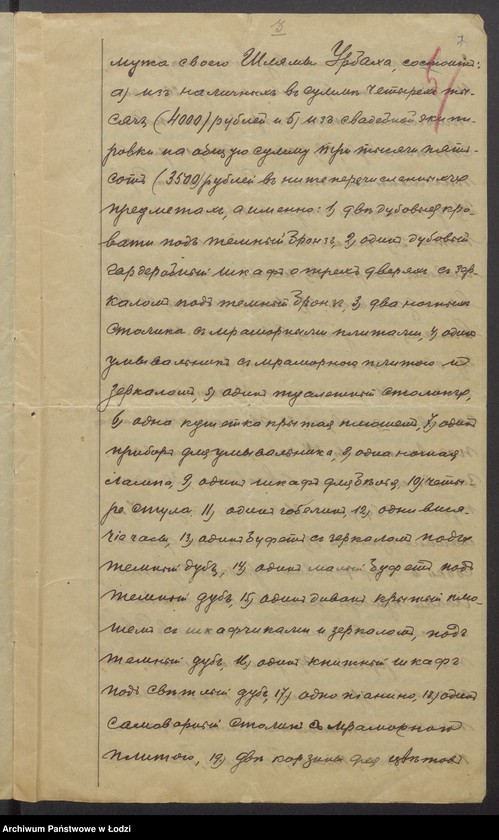 3
мужа своего Шлямы Урбаха, состоитъ:
а) изъ наличныхъ въ суммѣ четырехъ ты-
сячъ (4000) рублей и б) изъ свадебной экипи-
ровки на общую сумму три тысячи пять-
сотъ (3500) рублей въ нижеперечисленныхъ
предметахъ, а именно: 1) двѣ дубовыя кро-
вати подъ темный бронзъ, 2) одинъ дубовый
гардеробный шкафъ о трехъ дверяхъ съ зер-
каломъ подъ темный бронзъ, 3) два ночныхъ
столика съ мраморными плитами, 4) одинъ
умывальникъ съ мраморною плитою и
зеркаломъ, 5) одинъ туалетный столикъ,
6) одна кушетка крытая плюшемъ, 7) одинъ
приборъ для умывальника, 8) одна ночная
лампа, 9) одинъ шкафъ для бѣлья, 10) четы-
ре стула, 11) одинъ гобелинъ, 12) одни вися-
чіе часы, 13) одинъ буфетъ съ зеркаломъ подъ
темный дубъ, 14) одинъ малый буфетъ подъ
темный дубъ, 15) одинъ диванъ крытый плю-
шемъ съ шкафчиками и зеркаломъ, подъ
темный дубъ, 16) одинъ книжный шкафъ
подъ свѣтлый дубъ, 17) одно піанино, 18) одинъ
самоварный столикъ съ мраморною
плитою, 19) двѣ корзины для цвѣтовъ
Archiwum Państwowe w Łodzi